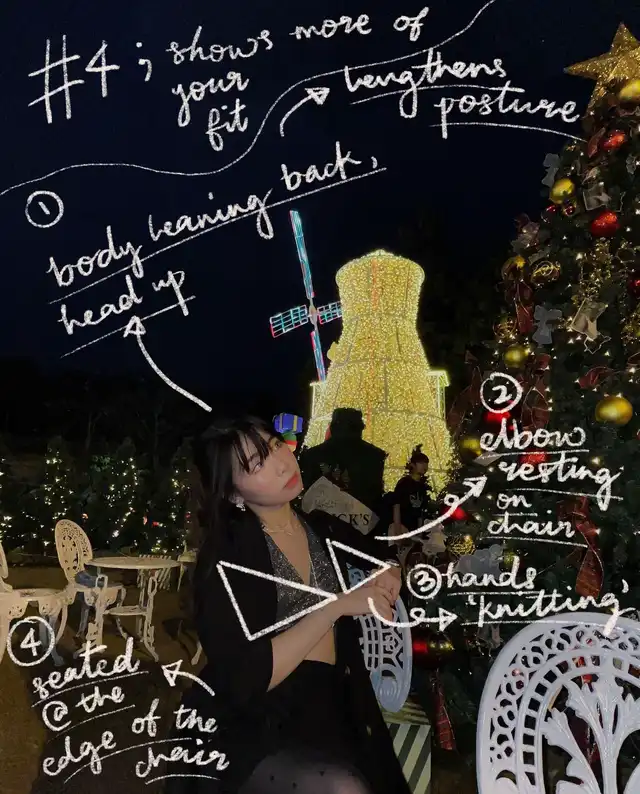 #4; shows more of
your
fit
lengthens
posture
① body leaning back,
head up
② elbow
resting
on
chair
③ hands
'knitting'
④ seated
@ the
edge of the
chair